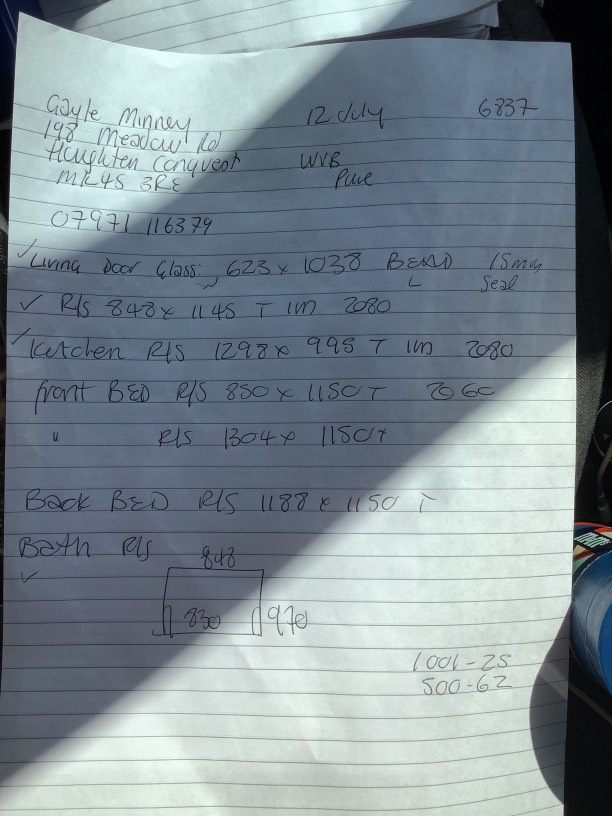 Gayle Minney 12 July 6837
198 Meadow Rd
Houghten Conquest WVB
MK45 3RE Pure
07971 116379
✓ Living Door Glass: 623 x 1038 BEAD 15mm
L Seal
✓ R/S 848 x 1145 T 1m 2080
✓ Kitchen R/S 1298 x 995 T 1m 2080
front BED R/S 850 x 1150 T 2060
" R/S 1304 x 1150 T
Back BED R/S 1188 x 1150 T
Bath R/S 848
✓
830 970
1001-25
500-62